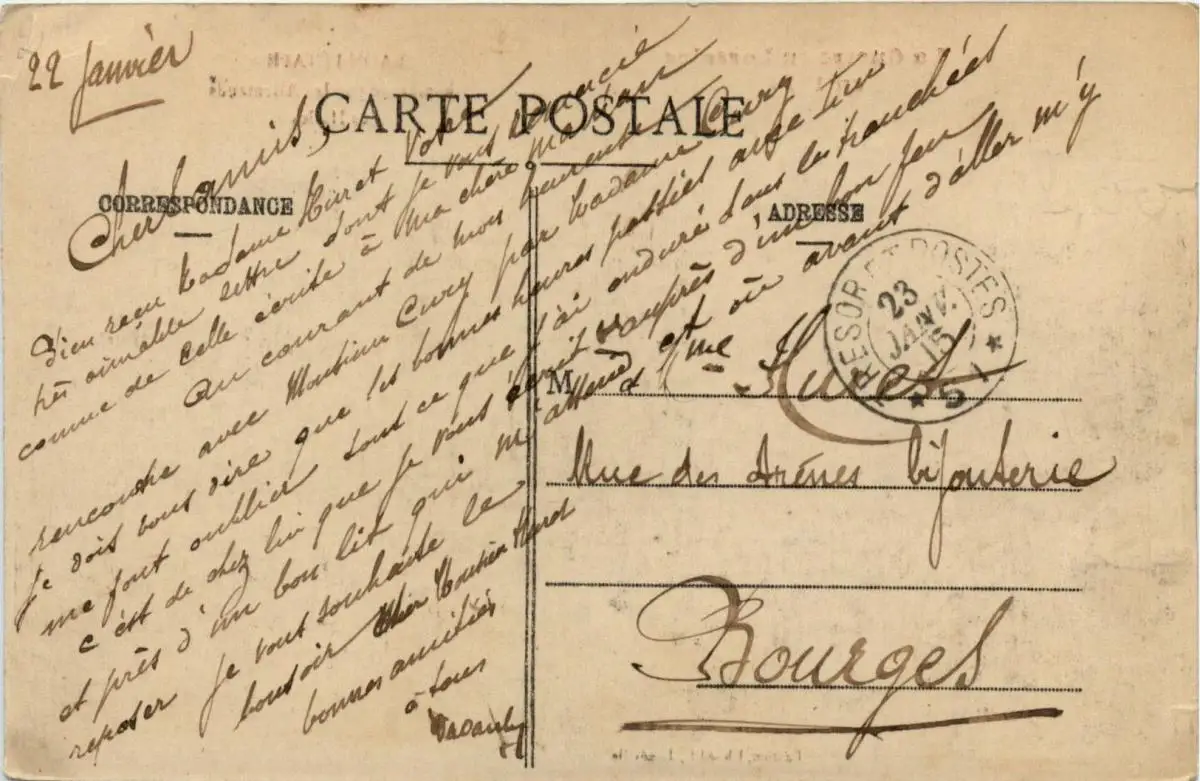 22 Janvier
CARTE POSTALE
CORRESPONDANCE
ADRESSE
Chers amis,
Bien reçu Madame Huret votre
très aimable lettre dont je vous remercie
comme de celle écrite à ma chère maman
Au courant de mon heureuse
rencontre avec Monsieur Cury par Madame Cury
je dois vous dire que les bonnes heures passées avec lui
me font oublier tout ce que j'ai enduré dans les tranchées
c'est de chez lui que je vous écrit auprès d'un bon feu
et près d'un bon lit qui m'attend et où avant d'aller m'y
reposer je vous souhaite le
bonsoir cher Monsieur Huret
bonnes amitiés
à tous
TRESOR ET POSTES
23
JANV.
15
* 51 *
M et Mme Huret
Rue des Arènes bijouterie
Bourges